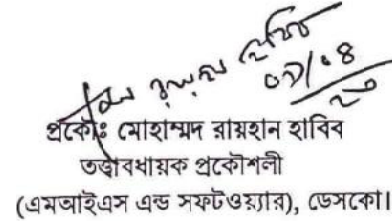 ০৯/০৪
২৩
প্রকৌঃ মোহাম্মদ রায়হান হাবিব
তত্ত্বাবধায়ক প্রকৌশলী
(এমআইএস এন্ড সফটওয়্যার), ডেসকো।